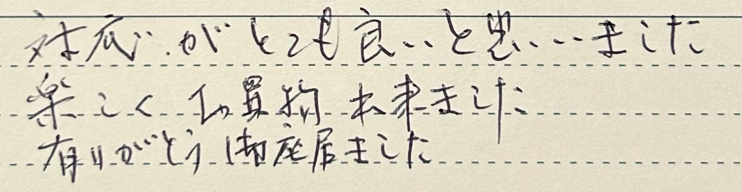 対応がとても良いと思いました
楽しくお買物出来ました
有りがとう御座居ました